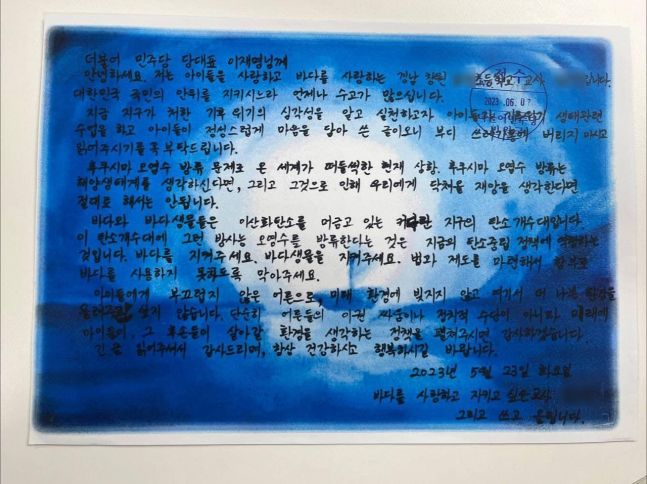 더불어 민주당 당대표 이재명님께
안녕하세요. 저는 아이들을 사랑하고 바다를 사랑하는 경남 창원 초등학교 교사 입니다.
대한민국 국민의 안위를 지키시느라 언제나 수고가 많으십니다.
지금 지구가 처한 기후위기의 심각성을 알고 실천하고자 아이들과 생태관련
수업을 하고 아이들이 정성스럽게 마음을 담아 쓴 글이오니 부디 버리지 마시고
읽어주시기를 꼭 부탁드립니다.
후쿠시마 오염수 방류 문제로 온 세계가 떠들썩한 현재 상황. 후쿠시마 오염수 방류는
해양생태계를 생각하신다면, 그리고 그것으로 인해 우리에게 닥쳐올 재앙을 생각한다면
절대로 해서는 안됩니다.
바다와 바다생물들은 이산화탄소를 머금고 있는 커다란 지구의 탄소 개수대입니다.
이 탄소개수대에 그런 방사능 오염수를 방류한다는 것은 지금의 탄소중립 정책에 역행하는
것입니다. 바다를 지켜주세요. 바다생물을 지켜주세요. 법과 제도를 마련해서 함부로
바다를 사용하지 못하도록 막아주세요.
아이들에게 부끄럽지 않은 어른으로, 미래 환경에 빚지지 않고 여기서 더 나쁜 환경을
물려주고 싶지 않습니다. 단순히 어른들의 이권 싸움이나 정치적 수단이 아니라 미래에
아이들이, 그 후손들이 살아갈 환경을 생각하는 정책을 펼쳐주시면 감사하겠습니다.
긴 글 읽어주셔서 감사드리며, 항상 건강하시고 행복하시길 바랍니다.
2023년 5월 23일 화요일
바다를 사랑하고 지키고 싶은 교사
그리고 쓰고 올립니다.
2023. 06. 07